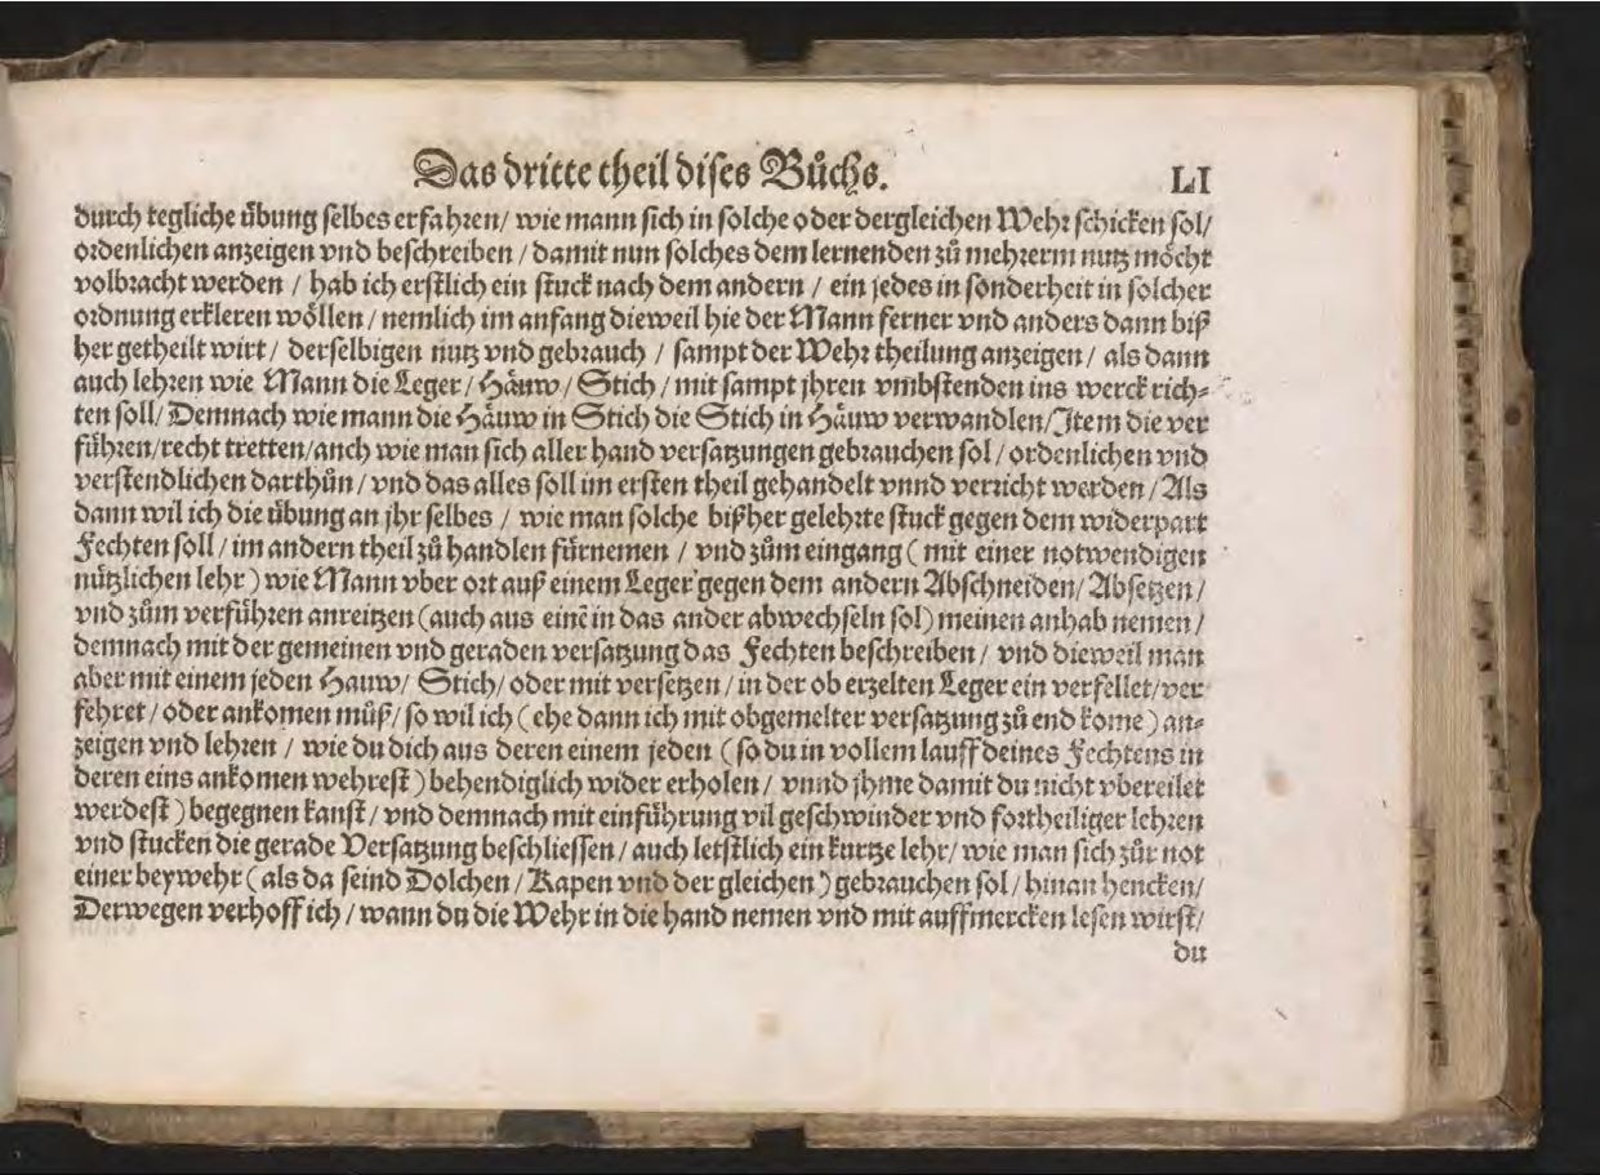 Das dritte theil dises Bůchs. LI
durch tegliche übung selbes erfahren / wie mann sich in solche oder dergleichen Wehr schicken sol /
ordenlichen anzeigen vnd beschreiben / damit nun solches dem lernenden zů mehrerm nutz möcht
volbracht werden / hab ich erstlich ein stuck nach dem andern / ein jedes in sonderheit in solcher
ordnung erkleren wöllen / nemlich im anfang dieweil hie der Mann ferner vnd anders dann biß
her getheilt wirt / derselbigen nutz vnd gebrauch / sampt der Wehr theilung anzeigen / als dann
auch lehren wie Mann die Leger / Häuw / Stich / mit sampt jhren vmbstenden ins werck rich⸗
ten soll / Demnach wie mann die Häuw in Stich die Stich in Häuw verwandlen / Item die ver
führen / recht tretten / anch wie man sich aller hand versatzungen gebrauchen sol / ordenlichen vnd
verstendlichen darthůn / vnd das alles soll im ersten theil gehandelt vnnd verricht werden / Als
dann wil ich die übung an jhr selbes / wie man solche bißher gelehrte stuck gegen dem widerpart
Fechten soll / im andern theil zů handlen fürnemen / vnd zům eingang ( mit einer notwendigen
nützlichen lehr ) wie Mann vber ort auß einem Leger gegen dem andern Abschneiden / Absetzen /
vnd zům verführen anreitzen ( auch aus einē in das ander abwechseln sol ) meinen anhab nemen /
demnach mit der gemeinen vnd geraden versatzung das Fechten beschreiben / vnd dieweil man
aber mit einem jeden Hauw / Stich / oder mit versetzen / in der ob erzelten Leger ein verfellet / ver
fehret / oder ankomen můß / so wil ich ( ehe dann ich mit obgemelter versatzung zů end kome ) an⸗
zeigen vnd lehren / wie du dich aus deren einem jeden ( so du in vollem lauff deines Fechtens in
deren eins ankomen wehrest ) behendiglich wider erholen / vnnd jhme damit du nicht vbereilet
werdest ) begegnen kanst / vnd demnach mit einführung vil geschwinder vnd fortheiliger lehren
vnd stucken die gerade Versatzung beschliessen / auch letstlich ein kurtze lehr / wie man sich zůr not
einer beywehr ( als da seind Dolchen / Kapen vnd der gleichen ) gebrauchen sol / hinan hencken /
Derwegen verhoff ich / wann du die Wehr in die hand nemen vnd mit auffmercken lesen wirst /
du